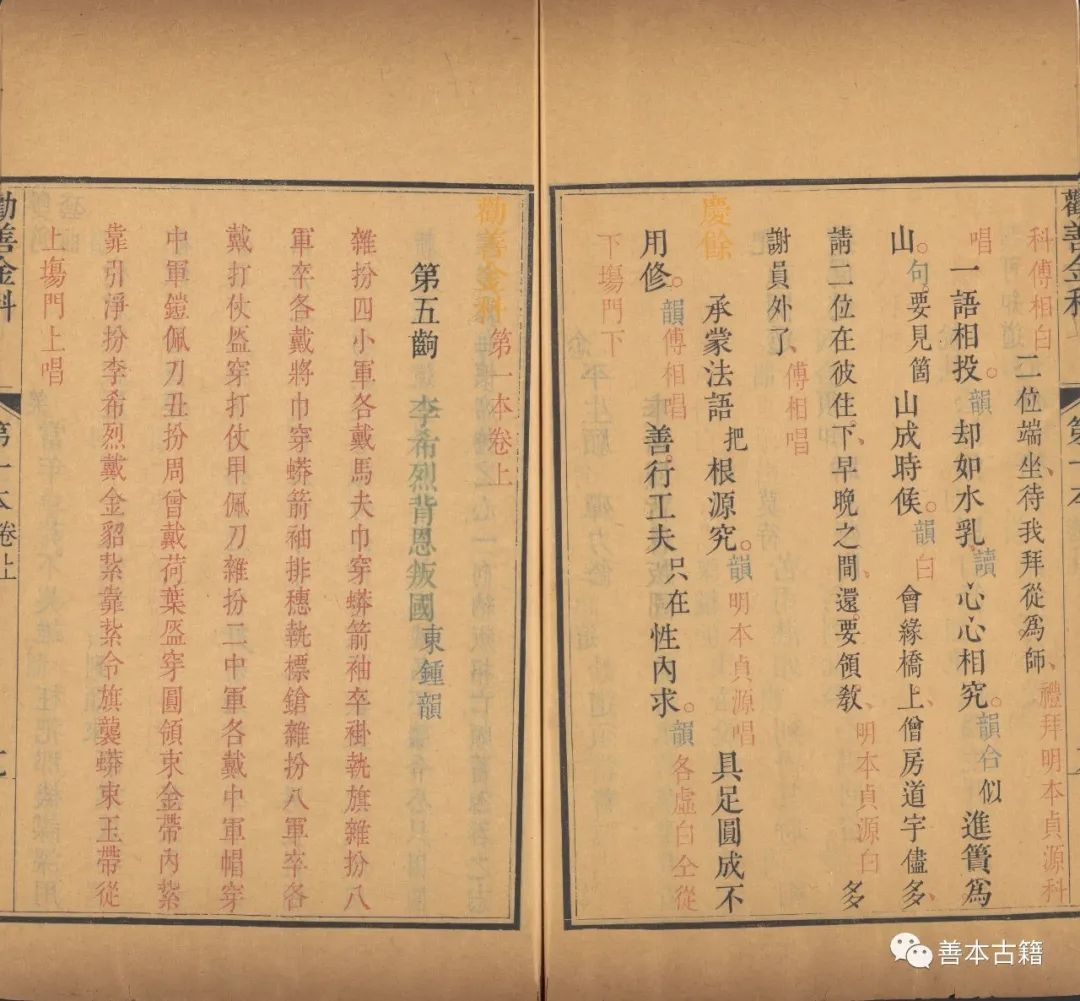 勸善金科
第十本
卷上
科傅相白二位端坐、待我拜從爲師、禮拜明本貞源科
唱一語相投。韻却如水乳。讀心心相究。韻台似進簣爲
山。句要見箇山成時候。韻白會緣橋上、僧房道宇儘多、
請二位在彼住下、早晚之間、還要領敎、明本貞源白多
謝員外了、傅相唱
慶餘承蒙法語把根源究。韻明本貞源唱具足圓成不
用修。韻傅相唱善行工夫只在性內求。韻各虛白仝從
下塲門下
勸善金科第一本卷上
第五齣李希烈背恩叛國東鍾韻
雜扮四小軍各戴馬夫巾穿蟒箭袖卒褂執旗雜扮八
軍卒各戴將巾穿蟒箭袖排穗執標鎗雜扮八軍卒各
戴打仗盔穿打仗甲佩刀雜扮二中軍各戴中軍帽穿
中軍鎧佩刀丑扮周曾戴荷葉盔穿圓領束金帶內紮
靠引淨扮李希烈戴金貂紮靠紮令旗襲蟒束玉帶從
上塲門上唱
勸善金科
第一本
卷上
善本古籍